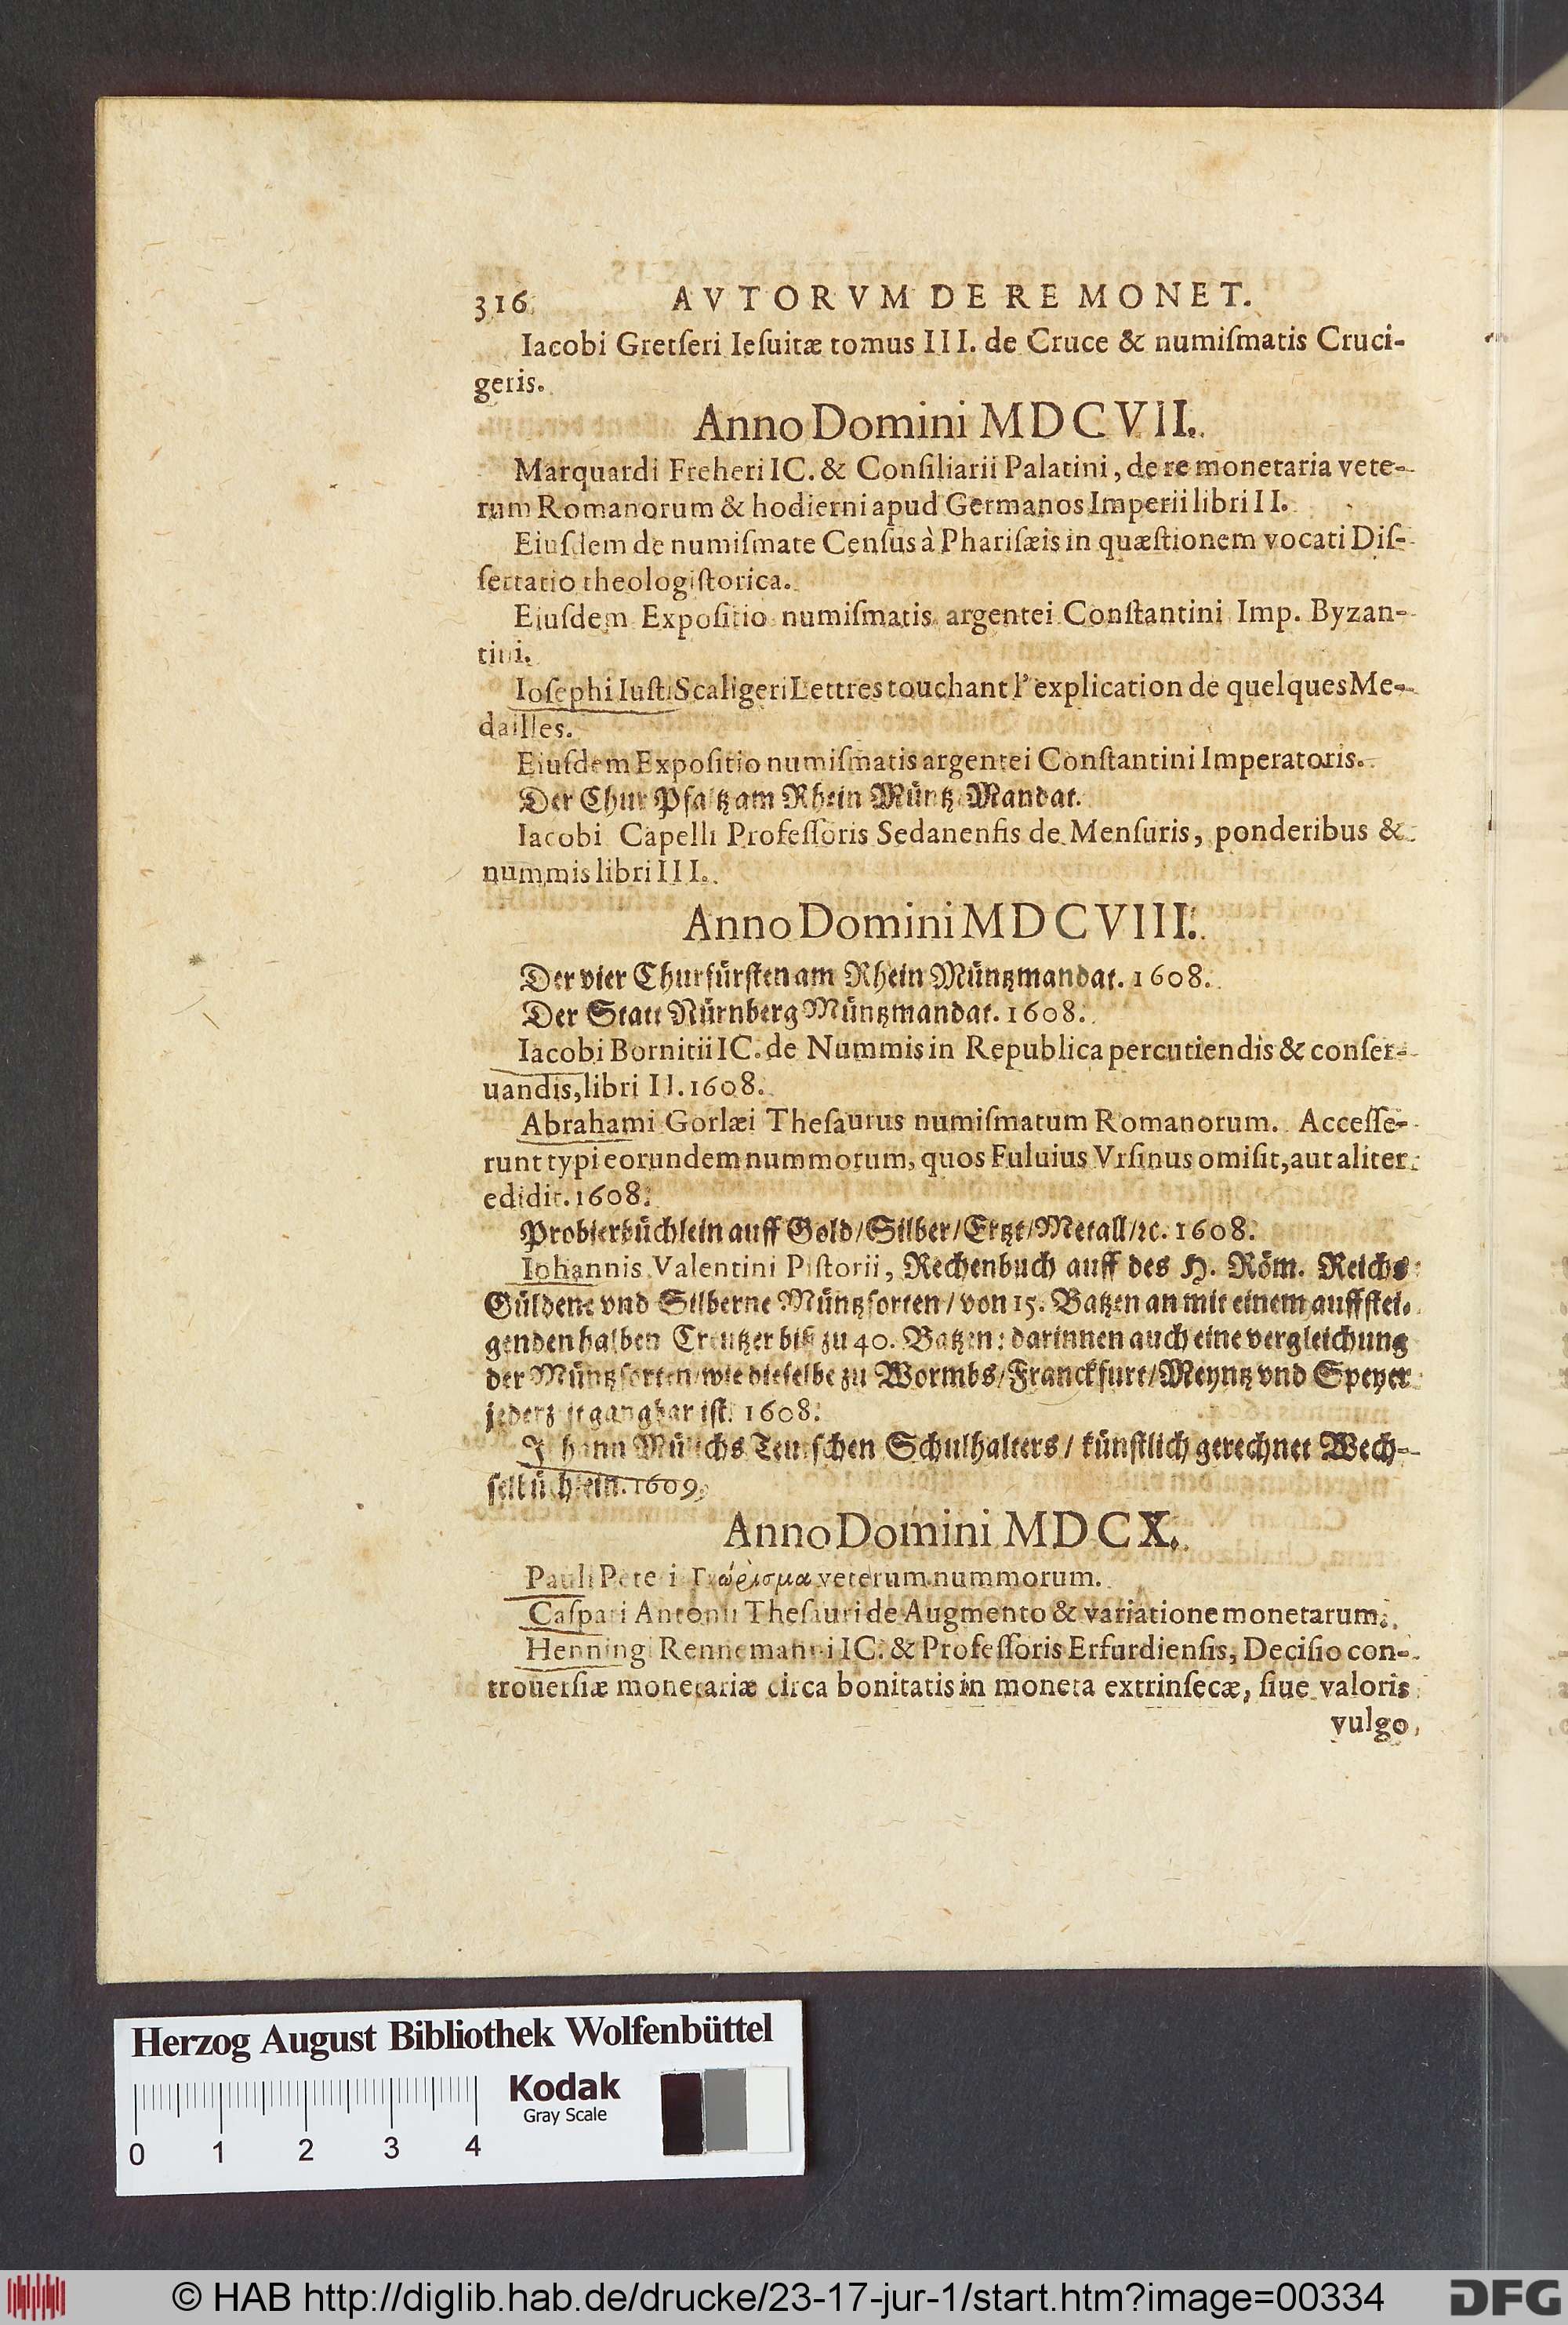 316 AVTORVM DE RE MONET.
Iacobi Gretſeri Ieſuitæ tomus III. de Cruce & numiſmatis Cruci-
geris.
Anno Domini MDCVII.
Marquardi Freheri IC. & Conſiliarii Palatini, de re monetaria vete-
rum Romanorum & hodierni apud Germanos Imperii libri II.
Eiuſdem de numiſmate Cenſus à Phariſæis in quæſtionem vocati Diſ-
ſertatio theologiſtorica.
Eiuſdem Expoſitio numiſmatis argentei Conſtantini Imp. Byzan-
tini.
Ioſephi Iuſti Scaligeri Lettres touchant l'explication de quelques Me-
dailles.
Eiuſdem Expoſitio numiſmatis argentei Conſtantini Imperatoris.
Der Chur Pfaltz am Rhein Müntz Mandat.
Iacobi Capelli Profeſſoris Sedanenſis de Menſuris, ponderibus &
nummis libri III.
Anno Domini MDCVIII.
Der vier Churfürſten am Rhein Müntzmandat. 1608.
Der Statt Nürnberg Müntzmandat. 1608.
Iacobi Bornitii IC. de Nummis in Republica percutiendis & conſer-
uandis, libri II. 1608.
Abrahami Gorlæi Theſaurus numiſmatum Romanorum. Acceſſe-
runt typi eorundem nummorum, quos Fuluius Vrſinus omiſit, aut aliter
edidit. 1608.
Probierbüchlein auff Gold/Silber/Ertzt/Metall/ꝛc. 1608.
Iohannis Valentini Piſtorii, Rechenbuch auff des H. Röm. Reichs
Güldene vnd Silberne Müntzſorten/von 15. Batzen an mit einem auffſtei-
genden halben Creutzer biß zu 40. Batzen: darinnen auch eine vergleichung
der Müntzſorten/wie dieſelbe zu Wormbs/Franckfurt/Meyntz vnd Speyer
jederzeit gangbar iſt. 1608.
Johann Mülichs Teutſchen Schulhalters/künſtlich gerechnet Wech-
ſelbüchlein. 1609.
Anno Domini MDCX.
Pauli Peteri Γνώρισμα veterum nummorum.
Caſpari Antonii Theſauri de Augmento & variatione monetarum.
Henningi Rennemanni IC. & Profeſſoris Erfurdienſis, Deciſio con-
trouerſiæ monetariæ circa bonitatis in moneta extrinſecæ, ſiue valoris
vulgo
Herzog August Bibliothek Wolfenbüttel
Kodak
Gray Scale
0 1 2 3 4
© HAB http://diglib.hab.de/drucke/23-17-jur-1/start.htm?image=00334
DFG